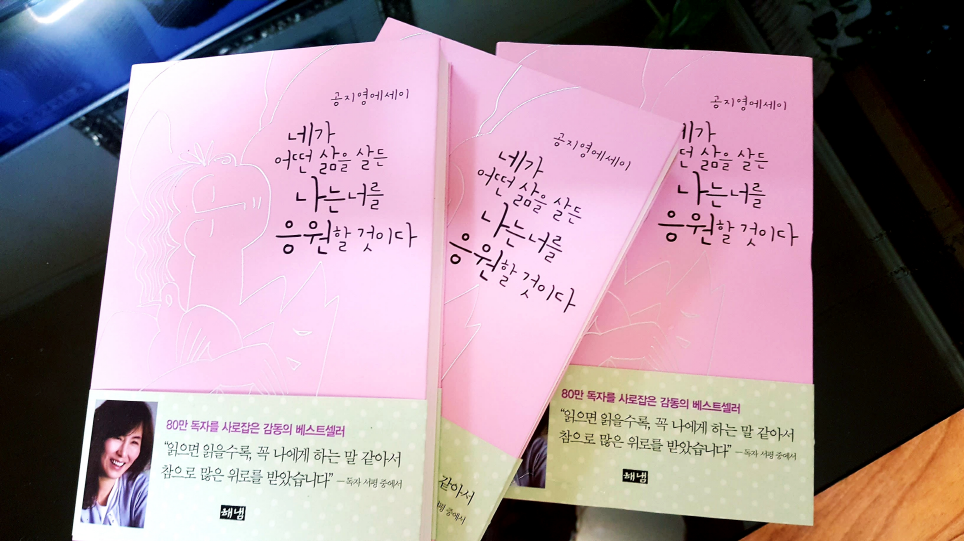 공지영에세이
네가
어떤 삶을 살든
나는 너를
응원할 것이다
80만 독자를 사로잡은 감동의 베스트셀러
“읽으면 읽을수록, 꼭 나에게 하는 말 같아서
참으로 많은 위로를 받았습니다” – 독자 서평 중에서
해냄
공지영에세이
네가
어떤 삶을 살든
나는 너를
응원할 것이다
같아서
서평 중에서
공지영에세이
네가
떤 삶을 살든
나는 너를
응원할 것이다
80만 독자를 사로잡은 감동의 베스트셀러
“읽으면 읽을수록, 꼭 나에게 하는 말 같아서
참으로 많은 위로를 받았습니다” – 독자 서평 중에서
해냄